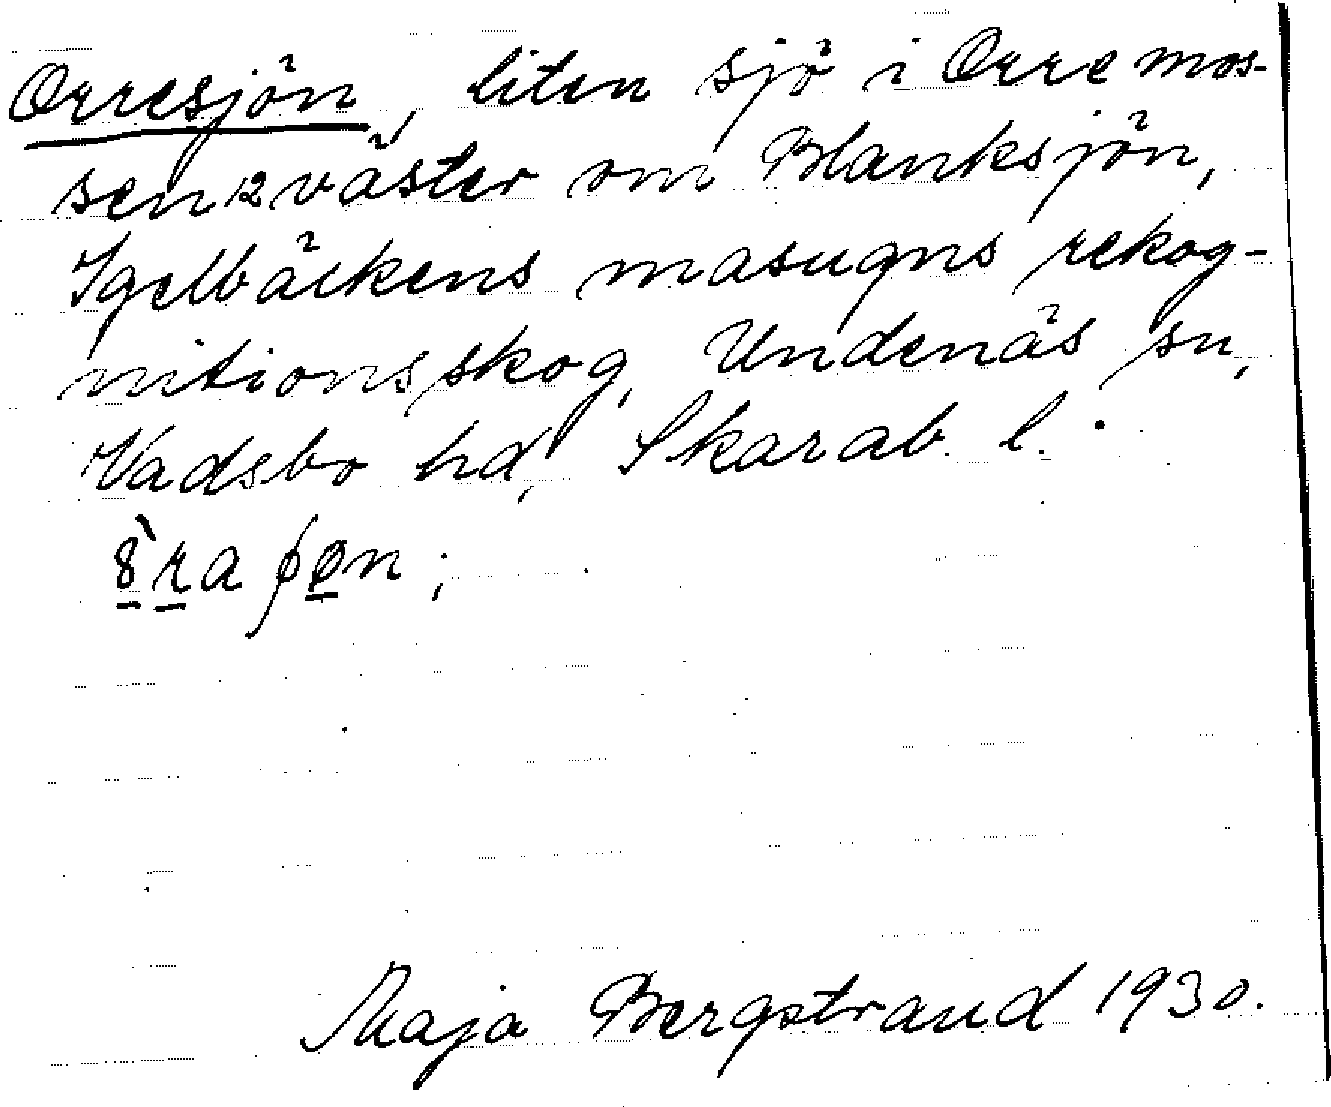 Orresjön, liten sjö i Orremos-
sen 12 väster om Blanksjön,
Igelbäckens masugns rekog-
nitionsskog, Undenäs sn,
Vadsbo hd, Skarab. l.
Maja Bergstrand 1930.